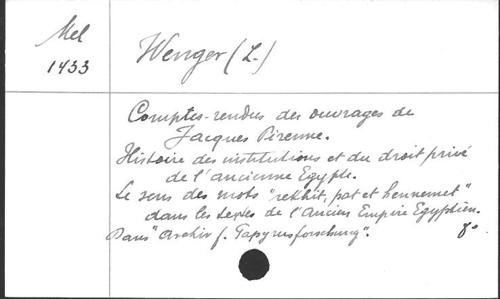 Mel
1433
Wenger (L.)
Comptes-rendus des ouvrages de
Jacques Pirenne.
Histoire des institutions et du droit privé
de l'ancienne Egypte.
Le sens des mots "rekhit, pat et henmemet"
dans les textes de l'Ancien Empire Egyptien.
Dans "Archiv f. Papyrusforschung".
8°